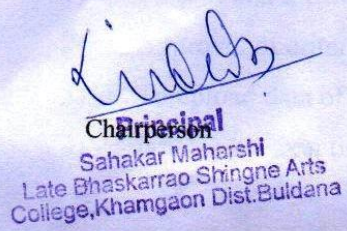 Principal
Chairperson
Sahakar Maharshi
Late Bhaskarrao Shingne Arts
College,Khamgaon Dist.Buldana